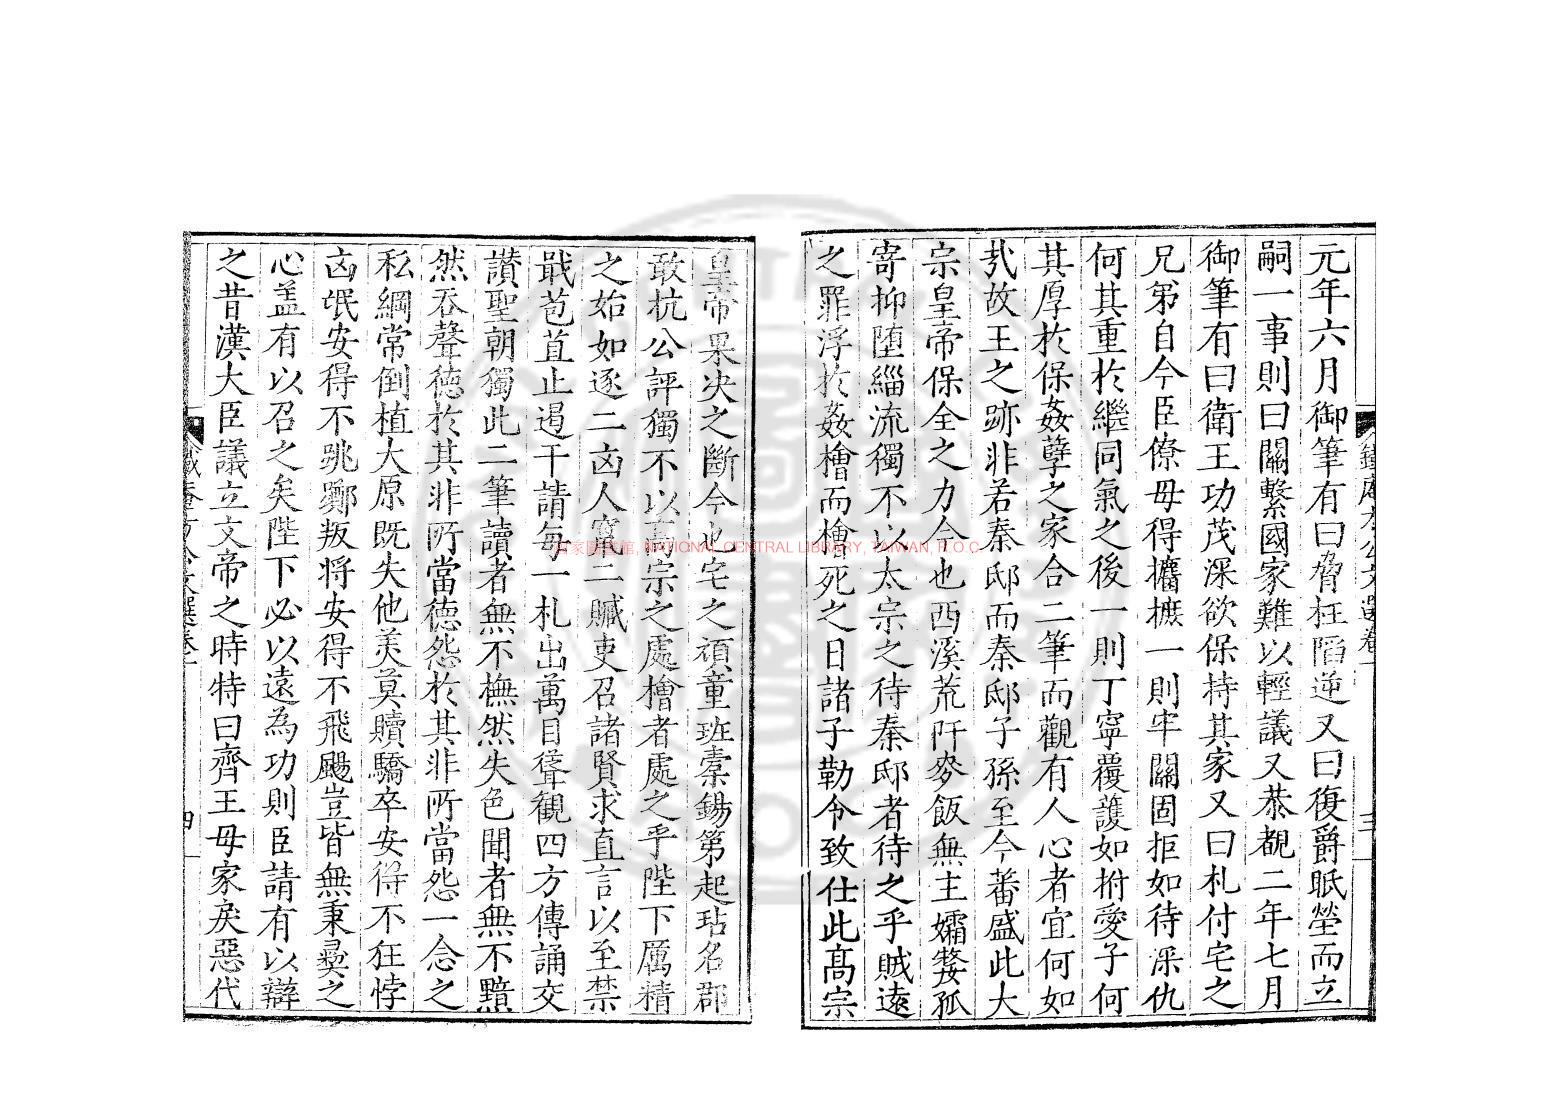 元年六月御筆有曰脅枉陷逆又曰復爵眂塋而立
嗣一事則曰關繫國家難以輕議又恭覩二年七月
御筆有曰衛王功茂深欲保持其家又曰札付宅之
兄弟自今臣僚毋得攟摭一則牢關固拒如待深仇
何其重於繼同氣之後一則丁寧覆護如拊愛子何
其厚於保姦孽之家合二筆而觀有人心者宜何如
㢤故王之跡非若秦邸而秦邸子孫至今蕃盛此大
宗皇帝保全之力今也西溪荒阡麥飯無主孀嫠孤
寄抑堕緇流獨不以太宗之待秦邸者待之乎賊遠
之罪浮於姦檜而檜死之日諸子勒令致仕此髙宗
鐵庵方公文選卷一
三
皇帝果决之斷今也宅之頑童班橐錫第起玷名郡
敢抗公評獨不以髙宗之處檜者處之乎陛下厲精
之始如逐二凶人竄二贓吏召諸賢求直言以至禁
戢苞苴止遏干請每一札出萬目聳観四方傳誦交
讃聖朝獨此二筆讀者無不憮然失色聞者無不黯
然吞聲德於其非所當德怨於其非所當怨一念之
私綱常倒植大原既失他美莫贖驕卒安得不狂悖
凶氓安得不跳躑叛将安得不飛颺豈皆無秉彛之
心盖有以召之矣陛下必以遠為功則臣請有以辯
之昔漢大臣議立文帝之時特曰齊王毋家戾惡代
鐵庵方公文選卷一
四
國家圖書館, NATIONAL CENTRAL LIBRARY, TAIWAN, R.O.C.